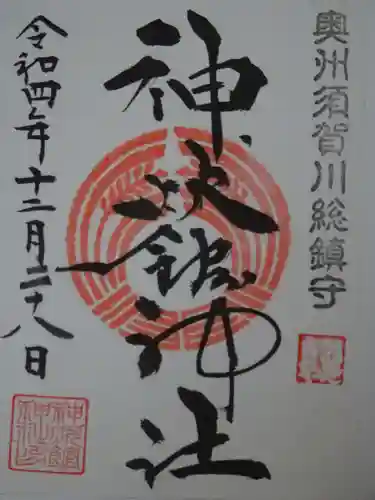 奥州須賀川総鎮守
神炊館神社
令和四年十二月二十八日